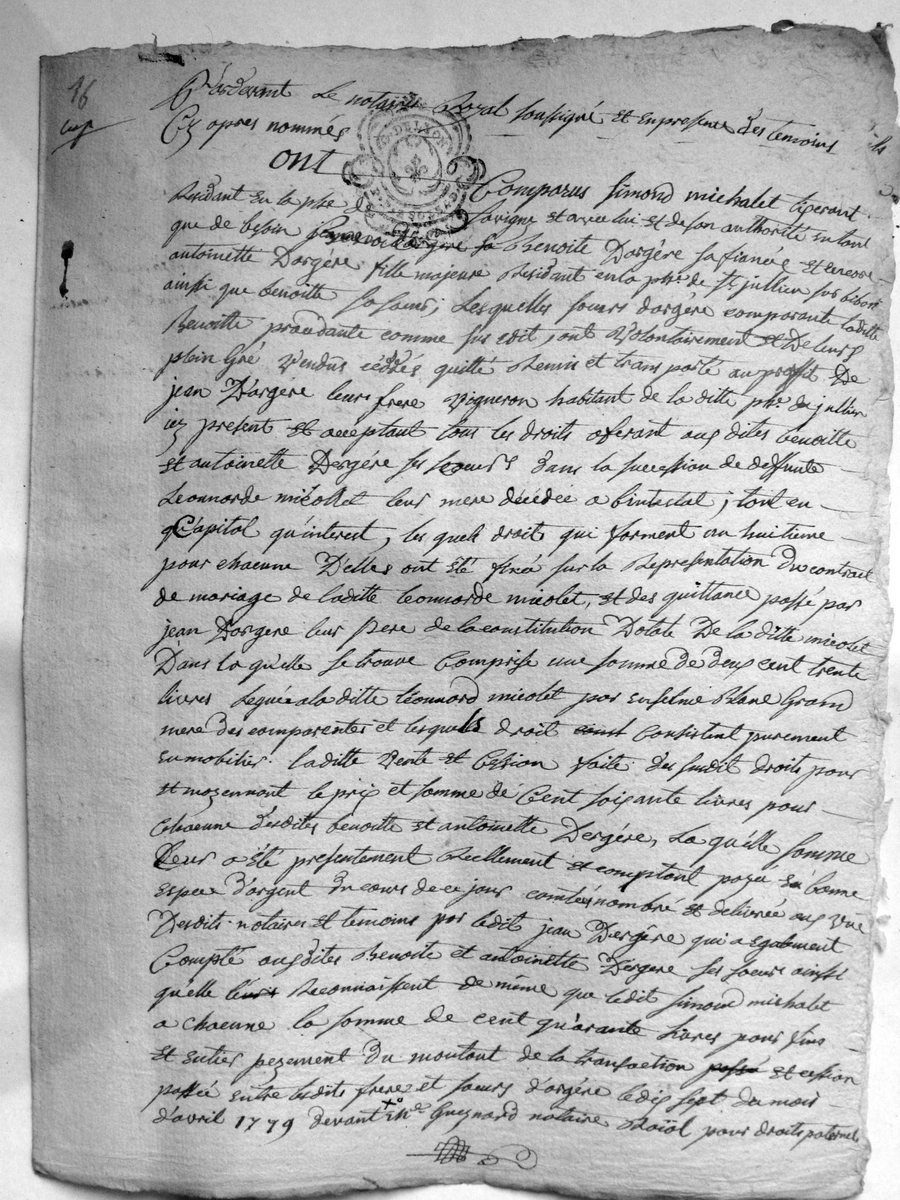 16
Pardevant Le notaire Royal soussigné et en presence des temoins
Cy apres nommés
ont
Comparus Simond michalet tiperant
Residant en la phe de Savigny et avec lui et de son authorité en tant
que de besoin Benoite Dargère sa fiancée et encore
antoinette Dargère fille majeure Residant en la phe. de st jullien sur bibost
ainsi que benoitte sa sœur; Lesquelles sœurs dargère comparante laditte
Benoitte procedante comme sus edit sont Volontairement et De leurs
plein Gré Vendus cédés, quitté Remis et transporté au proffit De
jean D'argère leurs frere Vigneron habitant de la ditte phe. de jullien
icy present et acceptant tous les droits aferant aus dites benoitte
et antoinette Dergère ses sœurs dans la succession de deffunte
Leonnorde micollet leur mere décédée a bintestat; tant en
Capital qu'interest, les quels droits qui forment un huitieme
pour chacune D'elles ont été fixé sur la Representation du contrat
de mariage de laditte Leonnorde micolet, et des quittance passé par
jean Dargere leur Pere de la constitution Dotale De la ditte micolet
Dans la qu'elle se trouve Comprise une somme de deux cent trente
livres Leguée a la ditte Léonnord micolet par Blane Grand
mere des comparentes et lesquels droit Consistent purement
en mobilier. laditte Vente et Cession faite des susdit droits pour
et moyennant le prix et somme de Cent soixante livres pour
Chacune desdites benoitte et antoinette Dergére, La qu'elle somme
Leur a été presentement Reellement et comptant payée en bonne
espece d'argent du cours de ce jour comtées nombré et delivrée aus vüe
Desdit. notaires et temoins par ledit jean Dergére qui a egalement
Compté ausdites Benoite et antoinette Dergere ses sœurs ainsi
qu'elle Reconnaissent de même que ledit Simond michalet
a chacune la somme de cent quarante livres pour fins
et entier payement du montant de la transaction passé et cession
passée entre lesdits frere et sœurs d'argère le dix sept du mois
d'avril 1779 devant me Guignard notaire Roïal pour droits paternels